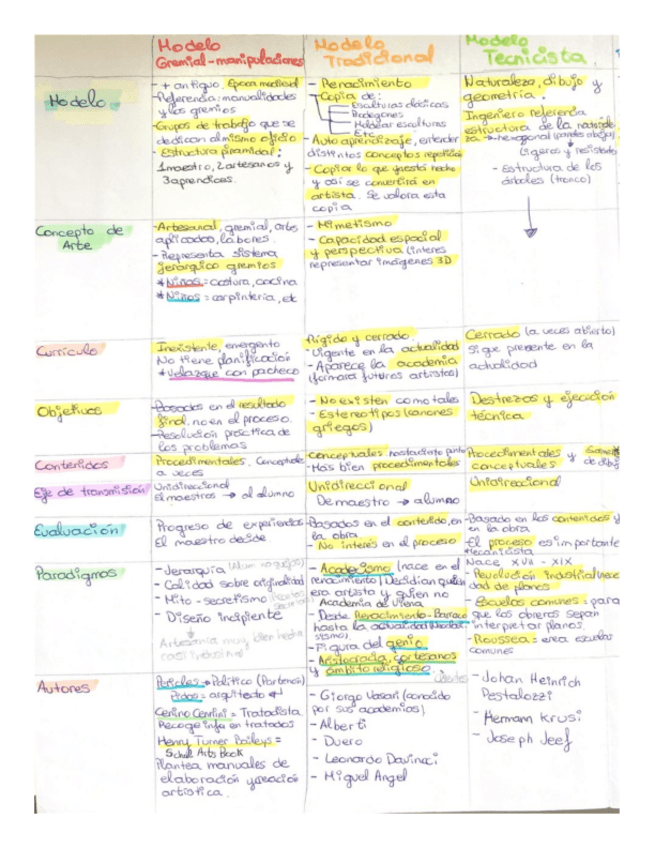 Modelo
Gremial-manipulaciones
Modelo
Tradicional
Modelo
Tecnicista
Modelo
- + antiguo. Epoca medieval
- Referencia: manualidades
y los gremios
- Grupos de trabajo que se
dedican al mismo oficio
- Estructura piramidal:
1 maestro, 2 artesanos y
3 aprendices.
- Renacimiento
- Copia de:
Esculturas clásicas
Bodegones
Moldear esculturas
Etc
- Auto aprendizaje, entender
distintos conceptos
- Copiar lo que ya está hecho
y así se convertirá en
artista. Se valora esta
copia
Naturaleza, dibujo y
geometría.
Ingeniero referencia
estructura de la
hexagonal
ligeros y resistentes
- Estructura de los
árboles (tronco)
Concepto de
Arte
- Artesanal, gremial, artes
aplicadas, labores.
- Representa sistema
jerarquico gremios
* Niñas = costura, cocina
* Niños = carpintería, etc
- Mimetismo
- Capacidad espacial
y perspectiva (interes
representar imágenes 3D
Currículo
Inexistente, emergente
No tiene planificación
* Velazque con pacheco
Rígido y cerrado
- Vigente en la actualidad
- Aparece la academia
(formará futuros artistas)
Cerrado (a veces abierto)
Sigue presente en la
actualidad
Objetivos
- Basados en el resultado
final, no en el proceso.
- Resolución práctica de
los problemas
- No existen como tales
- Estereotipos (canones
griegos)
Destrezas y ejecución
técnica
Contenidos
Procedimentales. Conceptuales
a veces
Conceptuales hasta cierto punto
- Más bien procedimentales
Procedimentales y
conceptuales
Eje de transmisión
Unidireccional
El maestros → al alumno
Unidireccional
De maestro → alumno
Unidireccional
Evaluación
Progreso de experiencias
El maestro decide
- Basados en el contenido, en
la obra
- No interés en el proceso
- Basado en los contenidos y
en la obra
El proceso es importante
Paradigmas
- Jerarquía
- Calidad sobre originalidad
- Mito - secretismo
- Diseño incipiente
Artesanía muy bien hecha
- Academicismo (nace en el
renacimiento) Decidían quien
era artista y quien no
Academia de Viena
- Desde Renacimiento - Barroco
hasta la actualidad
- Figura del genio
- Aristocracia, cortesanos
y ámbito religioso
Clientes
Mecanicista
Nace XVII - XIX
- Revolución industrial
dad de planos
- Escuelas comunes = para
que los obreros sepan
interpretar planos
- Rousseau = crea escuelas
comunes
Autores
Pericles → Político (Partenón)
Fidias = arquitecto
Cenino Cennini = Tratadista
Recoge info en tratados
Henry Turner Baileys =
School Arts Book
Plantea manuales de
elaboración y creación
artística.
- Giorgo Vasari (conocido
por sus academias)
- Alberti
- Duero
- Leonardo Davinci
- Miguel Angel
- Johan Heinrich
Pestalozzi
- Hermann Krusi
- Joseph Jeef